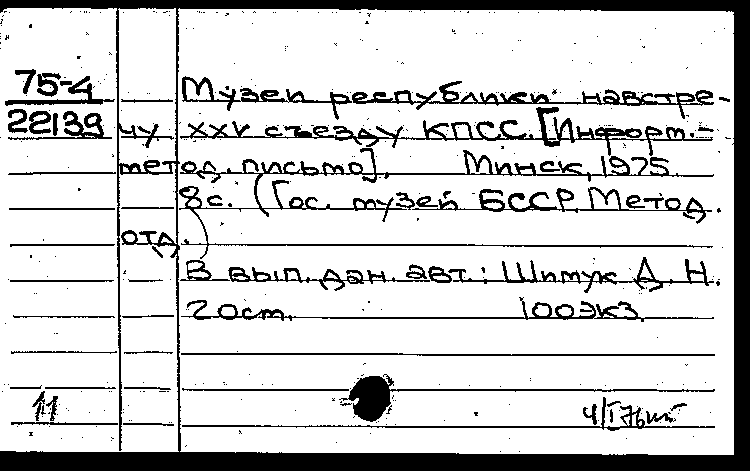 75-4
22139
Музеи республики навстре-
чу XXV съезду КПСС. [Информ.-
метод. письмо]. Минск, 1975
8 с. (Гос. музей БССР. Метод.
отд.
В вып. дан. авт.: Шимук Д. Н.
20 см. 100 экз.
11
4/I 76